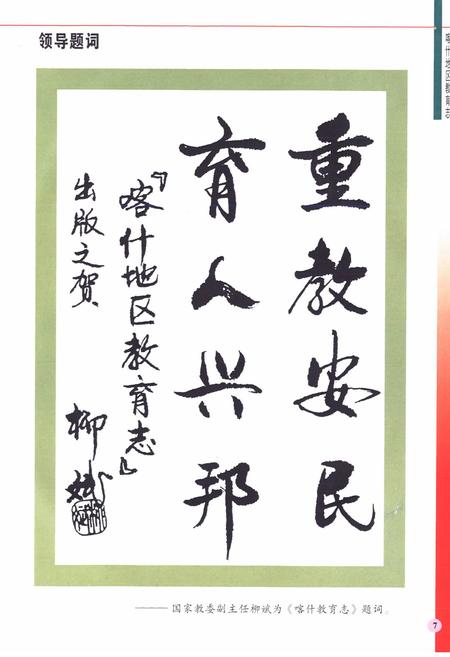 领导题词
喀什地区教育志
重教安民
育人兴邦
『喀什地区教育志』
出版之贺
柳斌
——— 国家教委副主任柳斌为《喀什教育志》题词。
7